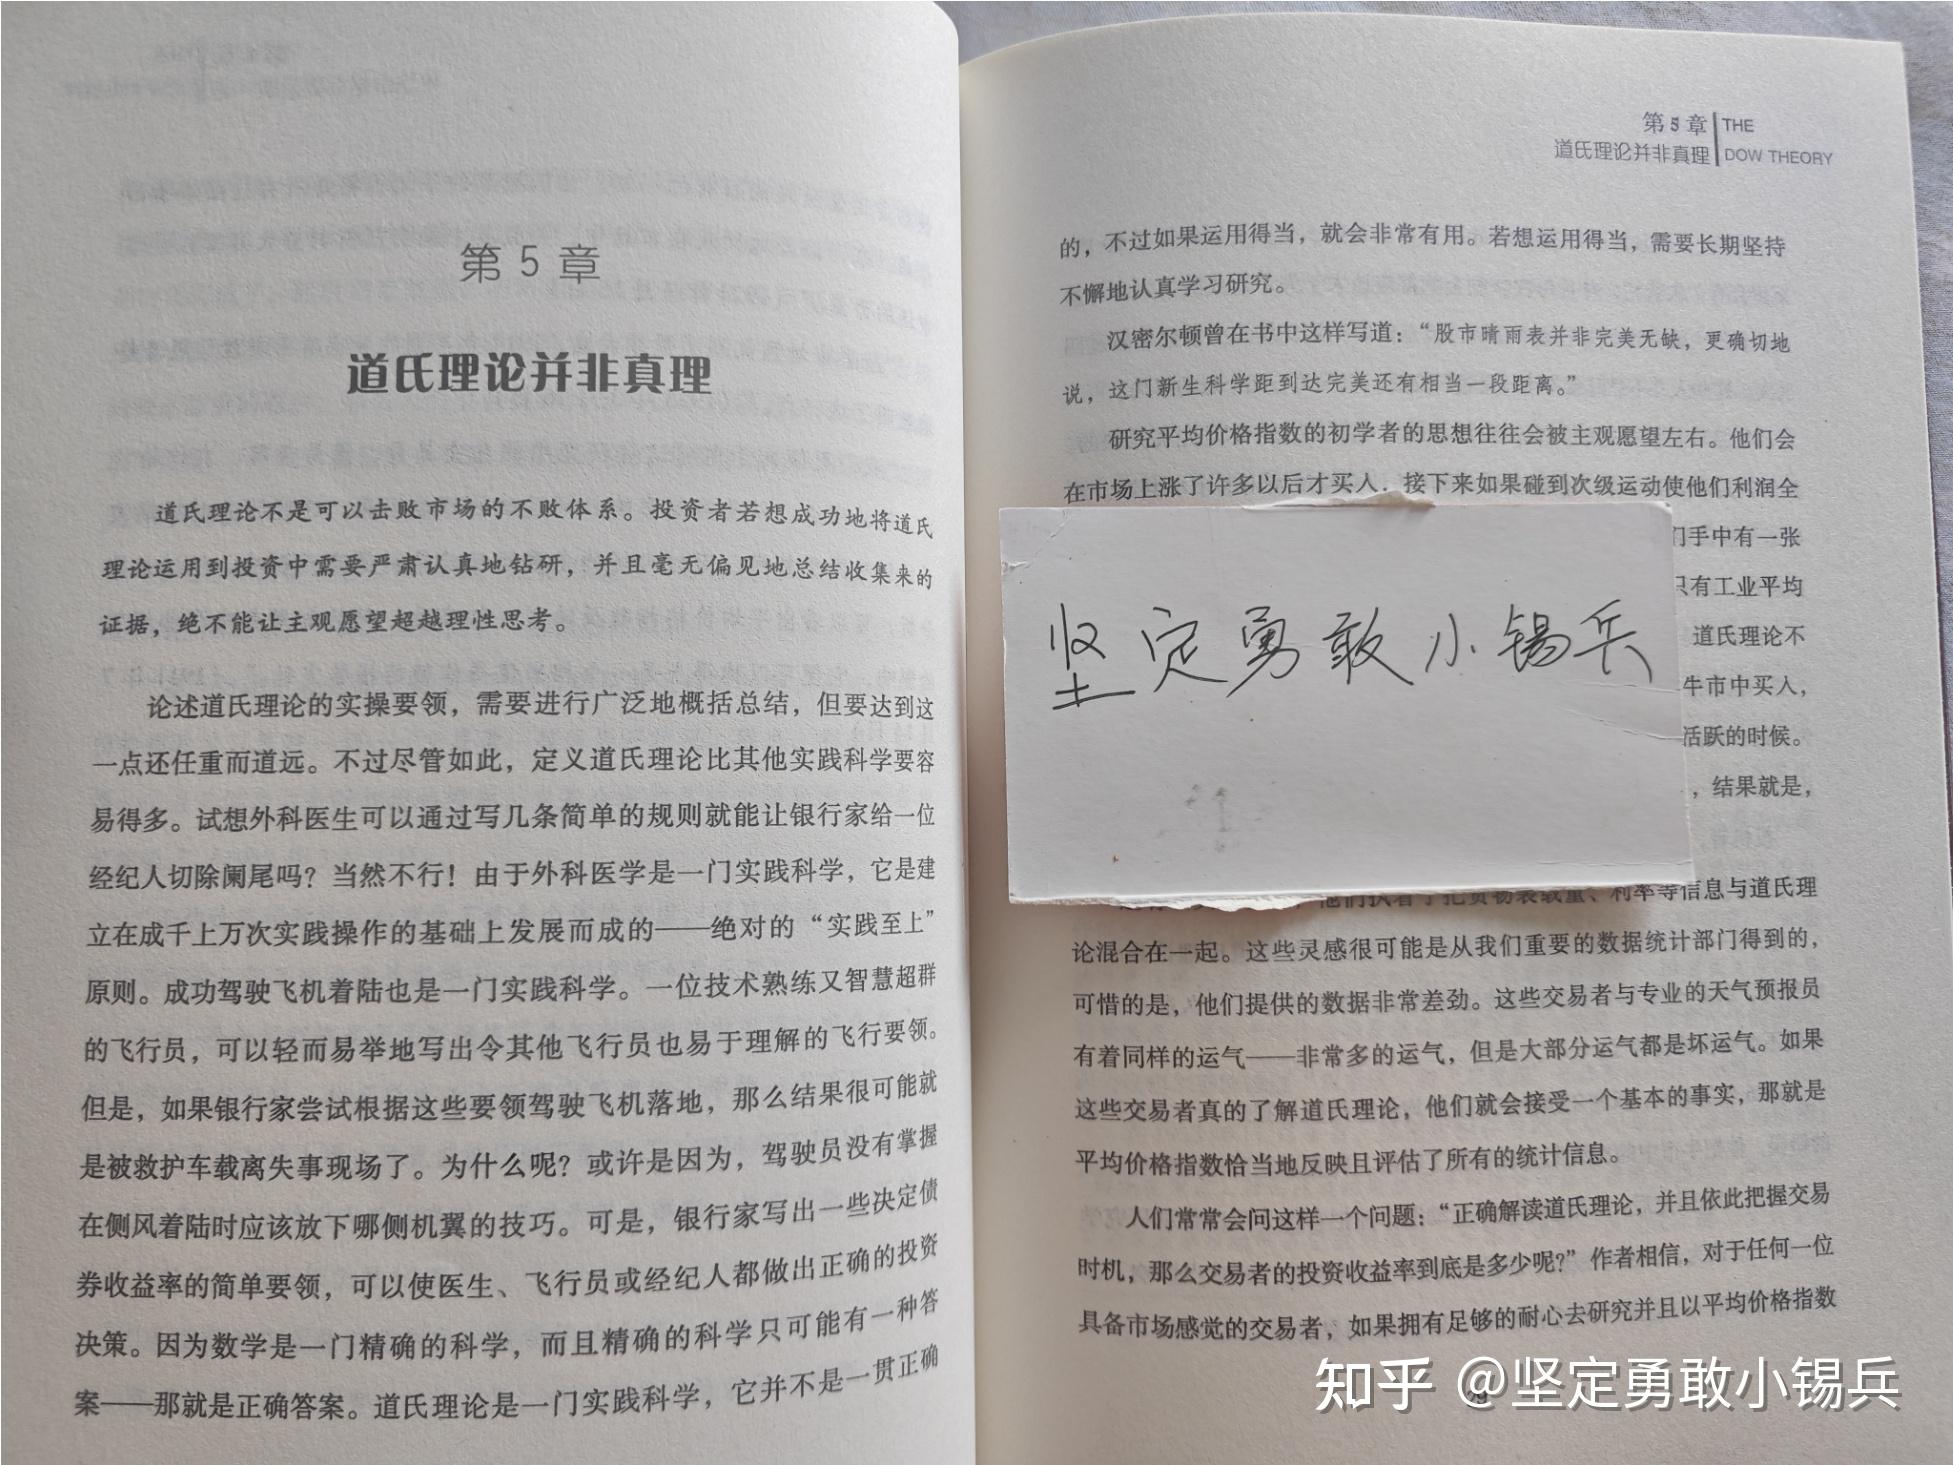 第 5 章
道氏理论并非真理
道氏理论不是可以击败市场的不败体系。投资者若想成功地将道氏
理论运用到投资中需要严肃认真地钻研，并且毫无偏见地总结收集来的
证据，绝不能让主观愿望超越理性思考。
论述道氏理论的实操要领，需要进行广泛地概括总结，但要达到这
一点还任重而道远。不过尽管如此，定义道氏理论比其他实践科学要容
易得多。试想外科医生可以通过写几条简单的规则就能让银行家给一位
经纪人切除阑尾吗？当然不行！由于外科医学是一门实践科学，它是建
立在成千上万次实践操作的基础上发展而成的——绝对的“实践至上”
原则。成功驾驶飞机着陆也是一门实践科学。一位技术熟练又智慧超群
的飞行员，可以轻而易举地写出令其他飞行员也易于理解的飞行要领。
但是，如果银行家尝试根据这些要领驾驶飞机落地，那么结果很可能就
是被救护车载离失事现场了。为什么呢？或许是因为，驾驶员没有掌握
在侧风着陆时应该放下哪侧机翼的技巧。可是，银行家写出一些决定债
券收益率的简单要领，可以使医生、飞行员或经纪人都做出正确的投资
决策。因为数学是一门精确的科学，而且精确的科学只可能有一种答
案——那就是正确答案。道氏理论是一门实践科学，它并不是一贯正确
第 5 章 THE
道氏理论并非真理 DOW THEORY
的，不过如果运用得当，就会非常有用。若想运用得当，需要长期坚持
不懈地认真学习研究。
汉密尔顿曾在书中这样写道：“股市晴雨表并非完美无缺，更确切地
说，这门新生科学距到达完美还有相当一段距离。”
研究平均价格指数的初学者的思想往往会被主观愿望左右。他们会
在市场上涨了许多以后才买入，接下来如果碰到次级运动使他们利润全
们手中有一张
只有工业平均
道氏理论不
牛市中买入，
活跃的时候。
，结果就是，
坚定勇敢小锡兵
他们执着于把货物装载量、利率等信息与道氏理
论混合在一起。这些灵感很可能是从我们重要的数据统计部门得到的，
可惜的是，他们提供的数据非常差劲。这些交易者与专业的天气预报员
有着同样的运气——非常多的运气，但是大部分运气都是坏运气。如果
这些交易者真的了解道氏理论，他们就会接受一个基本的事实，那就是
平均价格指数恰当地反映且评估了所有的统计信息。
人们常常会问这样一个问题：“正确解读道氏理论，并且依此把握交易
时机，那么交易者的投资收益率到底是多少呢？”作者相信，对于任何一位
具备市场感觉的交易者，如果拥有足够的耐心去研究并且以平均价格指数
知乎 @坚定勇敢小锡兵